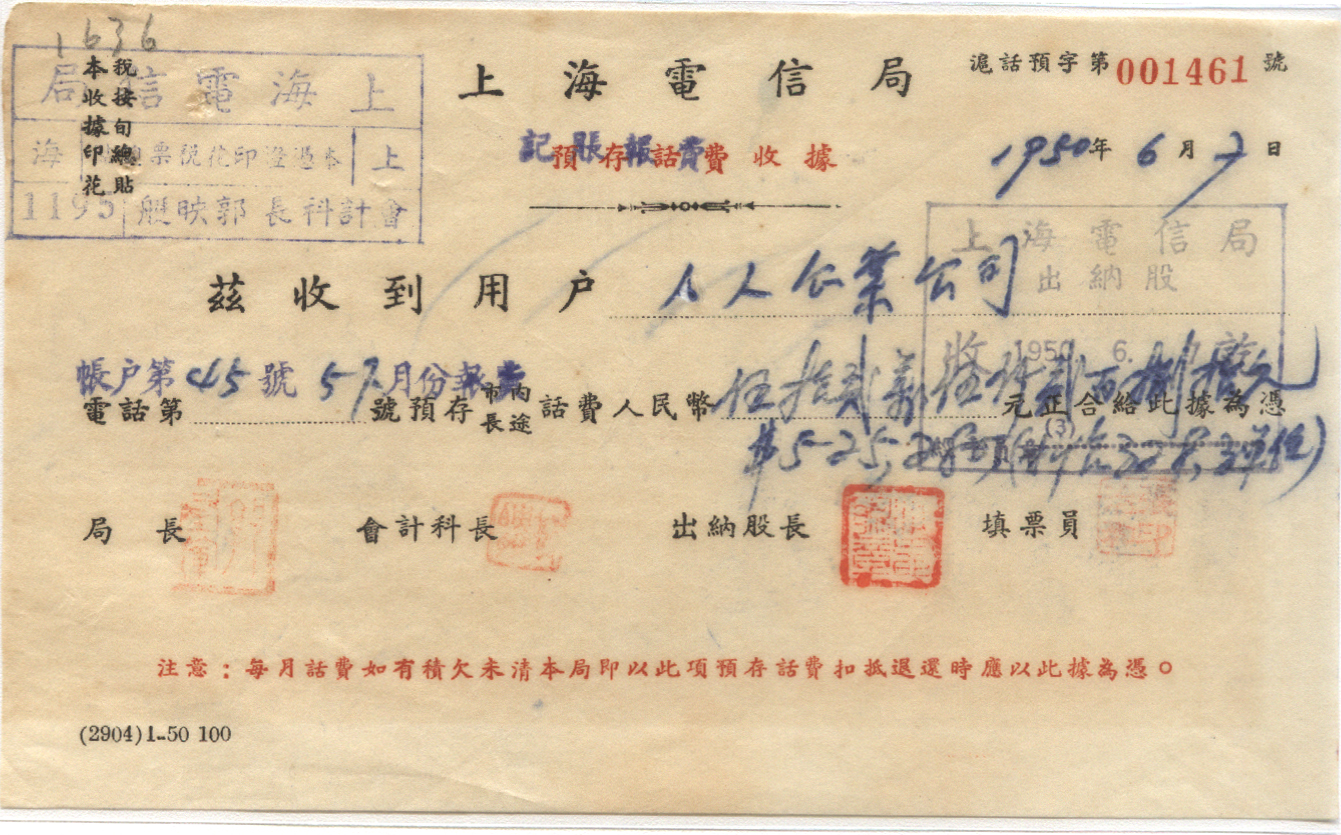 1636
本收據印花
稅按旬總貼
上海電信局
上海
會計科長郭映艇
1195
上海電信局
滬話預字第001461號
預存話費收據
記賬報費
1950年6月7日
茲收到用户人人企業公司
上海電信局
出納股
1950. 6. 7
帳户第45號 5月份報費
電話第 號預存市內長途話費人民幣伍拾貳萬伍仟貳百捌拾元元正合給此據為憑
(3)
$525,280
局長 會計科長 出納股長 填票員
注意：每月話費如有積欠未清本局即以此項預存話費扣抵退還時應以此據為憑。
(2904)1-50 100